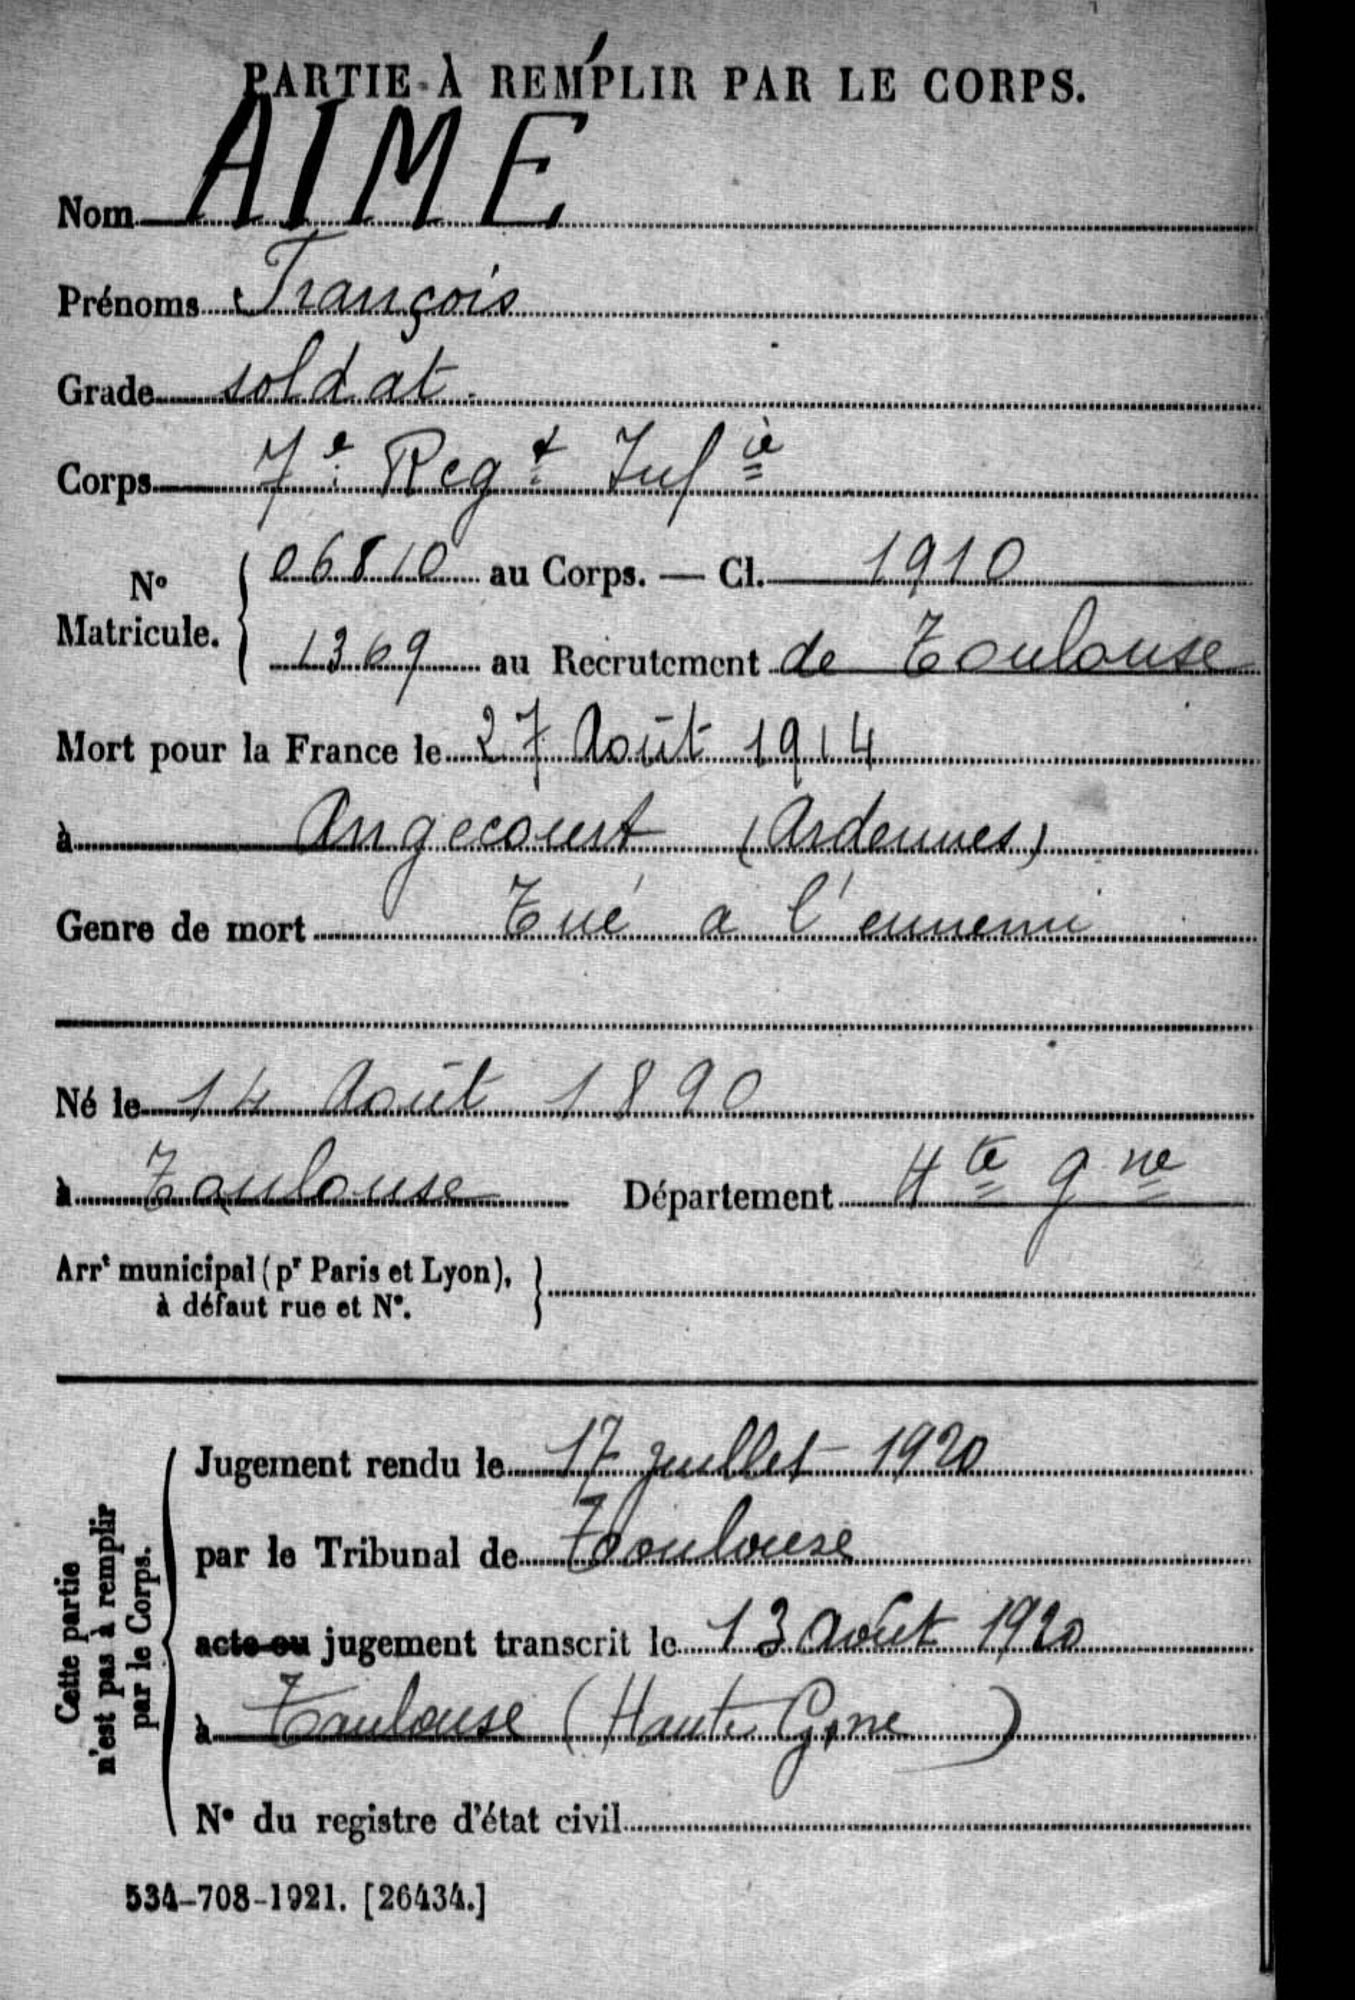 PARTIE À REMPLIR PAR LE CORPS.
Nom AIMÉ
Prénoms François
Grade soldat
Corps 7e Regt Infie
No Matricule. { 06810 au Corps. — Cl. 1910
1369 au Recrutement de Toulouse
Mort pour la France le 27 Août 1914
à Angecourt (Ardennes)
Genre de mort Tué a l'ennemi
Né le 14 Août 1890
à Toulouse Département Hte Gne
Arrt municipal (pr Paris et Lyon), à défaut rue et No. }
Cette partie n'est pas à remplir par le Corps.
Jugement rendu le 17 juillet 1920
par le Tribunal de Toulouse
acte ou jugement transcrit le 13 août 1920
à Toulouse (Haute Gne)
No du registre d'état civil
534-708-1921. [26434.]